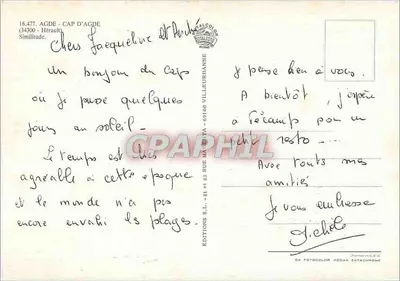 16.477. AGDE - CAP D'AGDE
(34300 - Hérault)
Similitude.
Chers Jacqueline et André
Un bonjour du Cap
où je passe quelques
jours au soleil -
Le temps est très
agréable à cette époque
et le monde n'a pas
encore envahi les plages.
Je pense bien à vous.
A bientôt, j'espère
à Fécamp pour un
petit resto ---
Avec toutes mes
amitiés
Je vous embrasse
Michèle
EDITIONS S.L. - 21 et 23 RUE 69100 VILLEURBANNE
CPAPHIL
SA FOTOCOLOR KODAK EKTACHROME